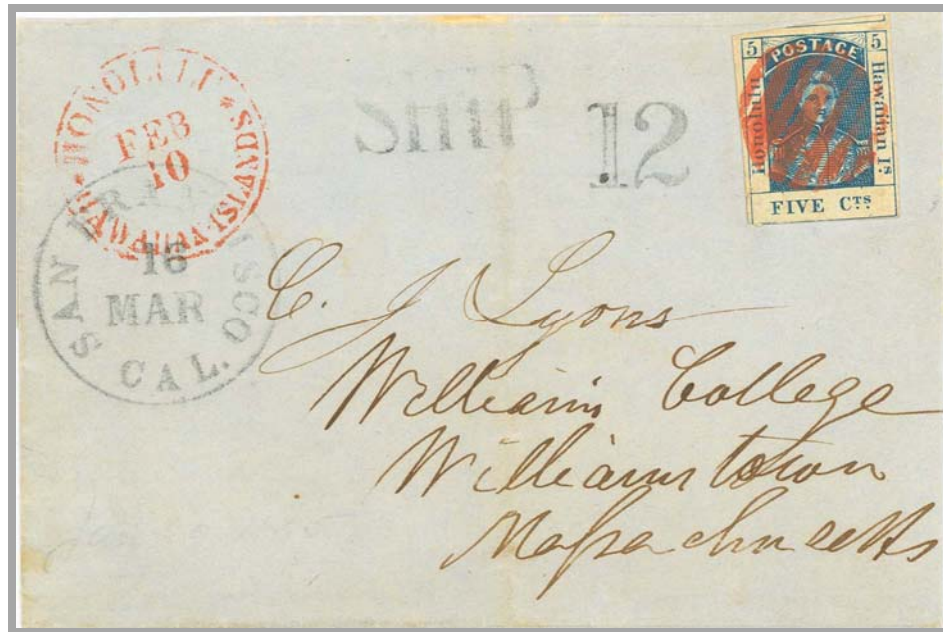 HONOLULU * U.S. POSTAGE PAID * HAWAIIAN-ISLANDS *
FEB
10
SAN FRANCISCO
16
MAR
CAL.
SHIP
12
5 POSTAGE 5
Honolulu
Hawaiian Is.
FIVE CTS
C. J. Lyons
William College
Williamstown
Massachusetts